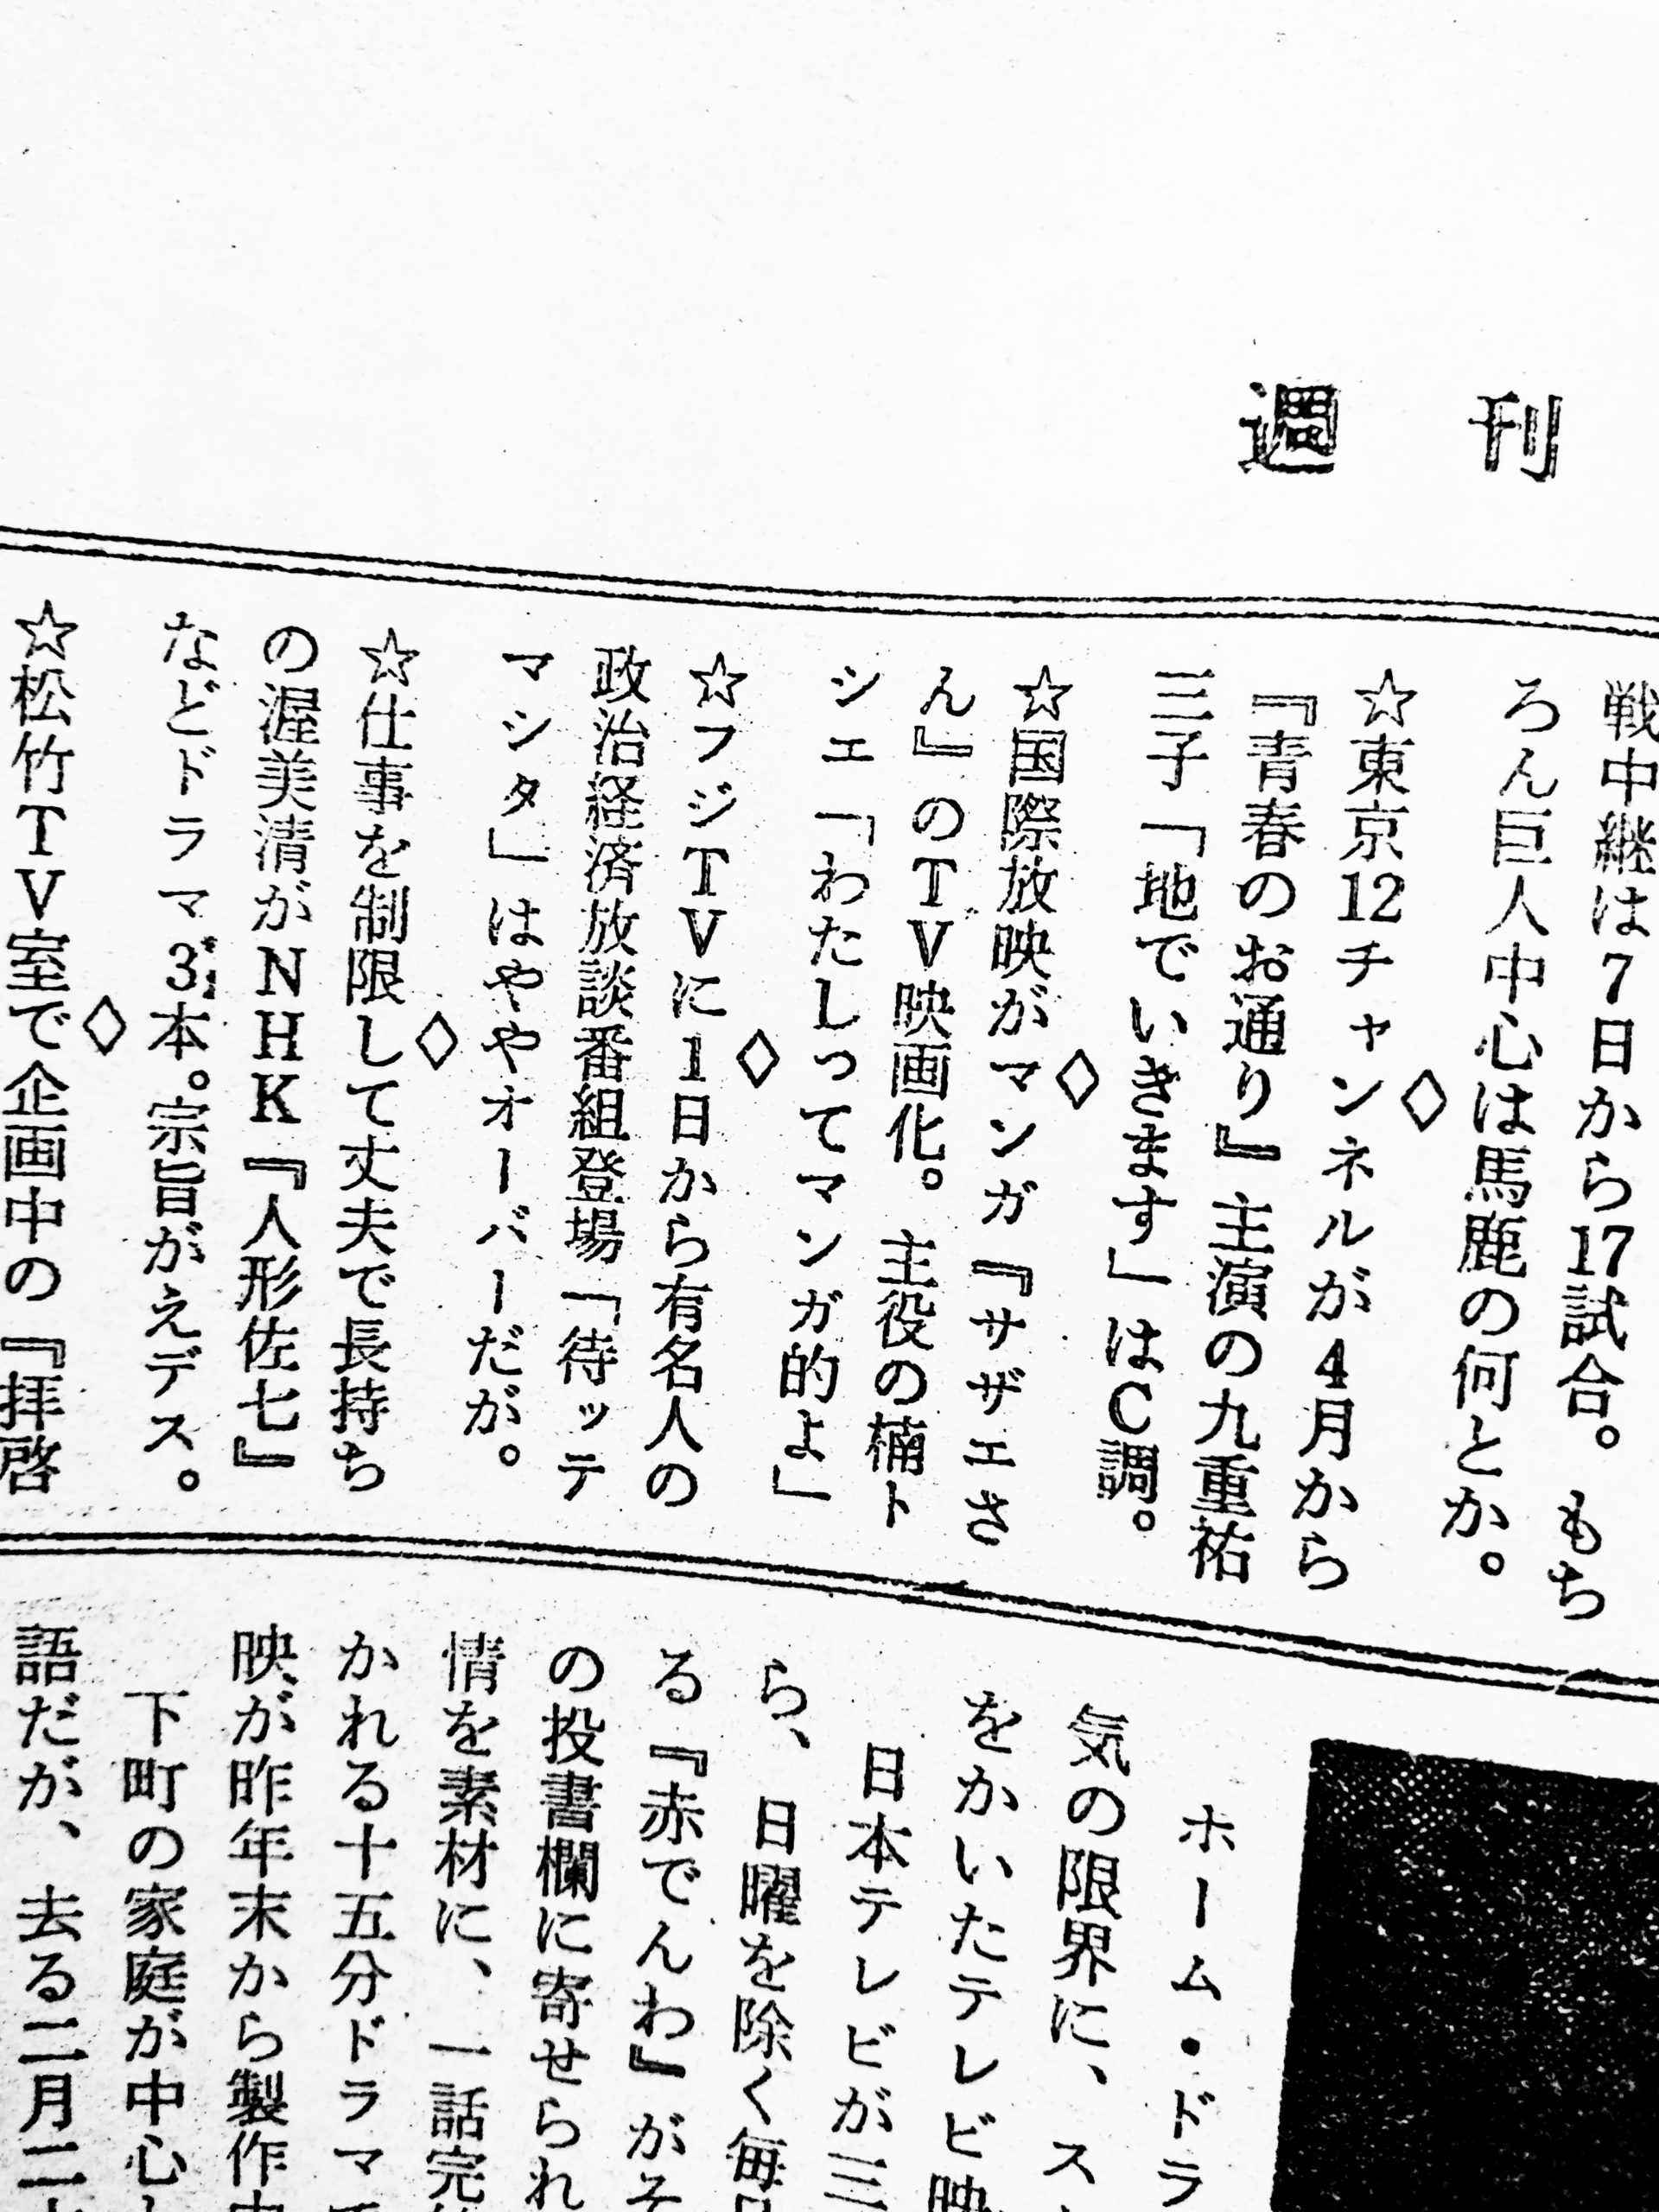 週刊
戦中継は7日から17試合。もち
ろん巨人中心は馬鹿の何とか。
◇
☆東京12チャンネルが4月から
『青春のお通り』主演の九重祐
三子「地でいきます」はC調。
◇
☆国際放映がマンガ『サザエさ
ん』のTV映画化。主役の楠ト
シエ「わたしってマンガ的よ」
◇
☆フジTVに1日から有名人の
政治経済放談番組登場「待ッテ
マシタ」はややオーバーだが。
◇
☆仕事を制限して丈夫で長持ち
の渥美清がNHK『人形佐七』
などドラマ3本。宗旨がえデス。
◇
☆松竹TV室で企画中の『拝啓
ホーム・ドラ
気の限界に、ス
をかいたテレビ映
日本テレビが三
ら、日曜を除く毎
る『赤でんわ』がそ
の投書欄に寄せられ
情を素材に、一話完
かれる十五分ドラマ
映が昨年末から製作
下町の家庭が中心
語だが、去る二月二